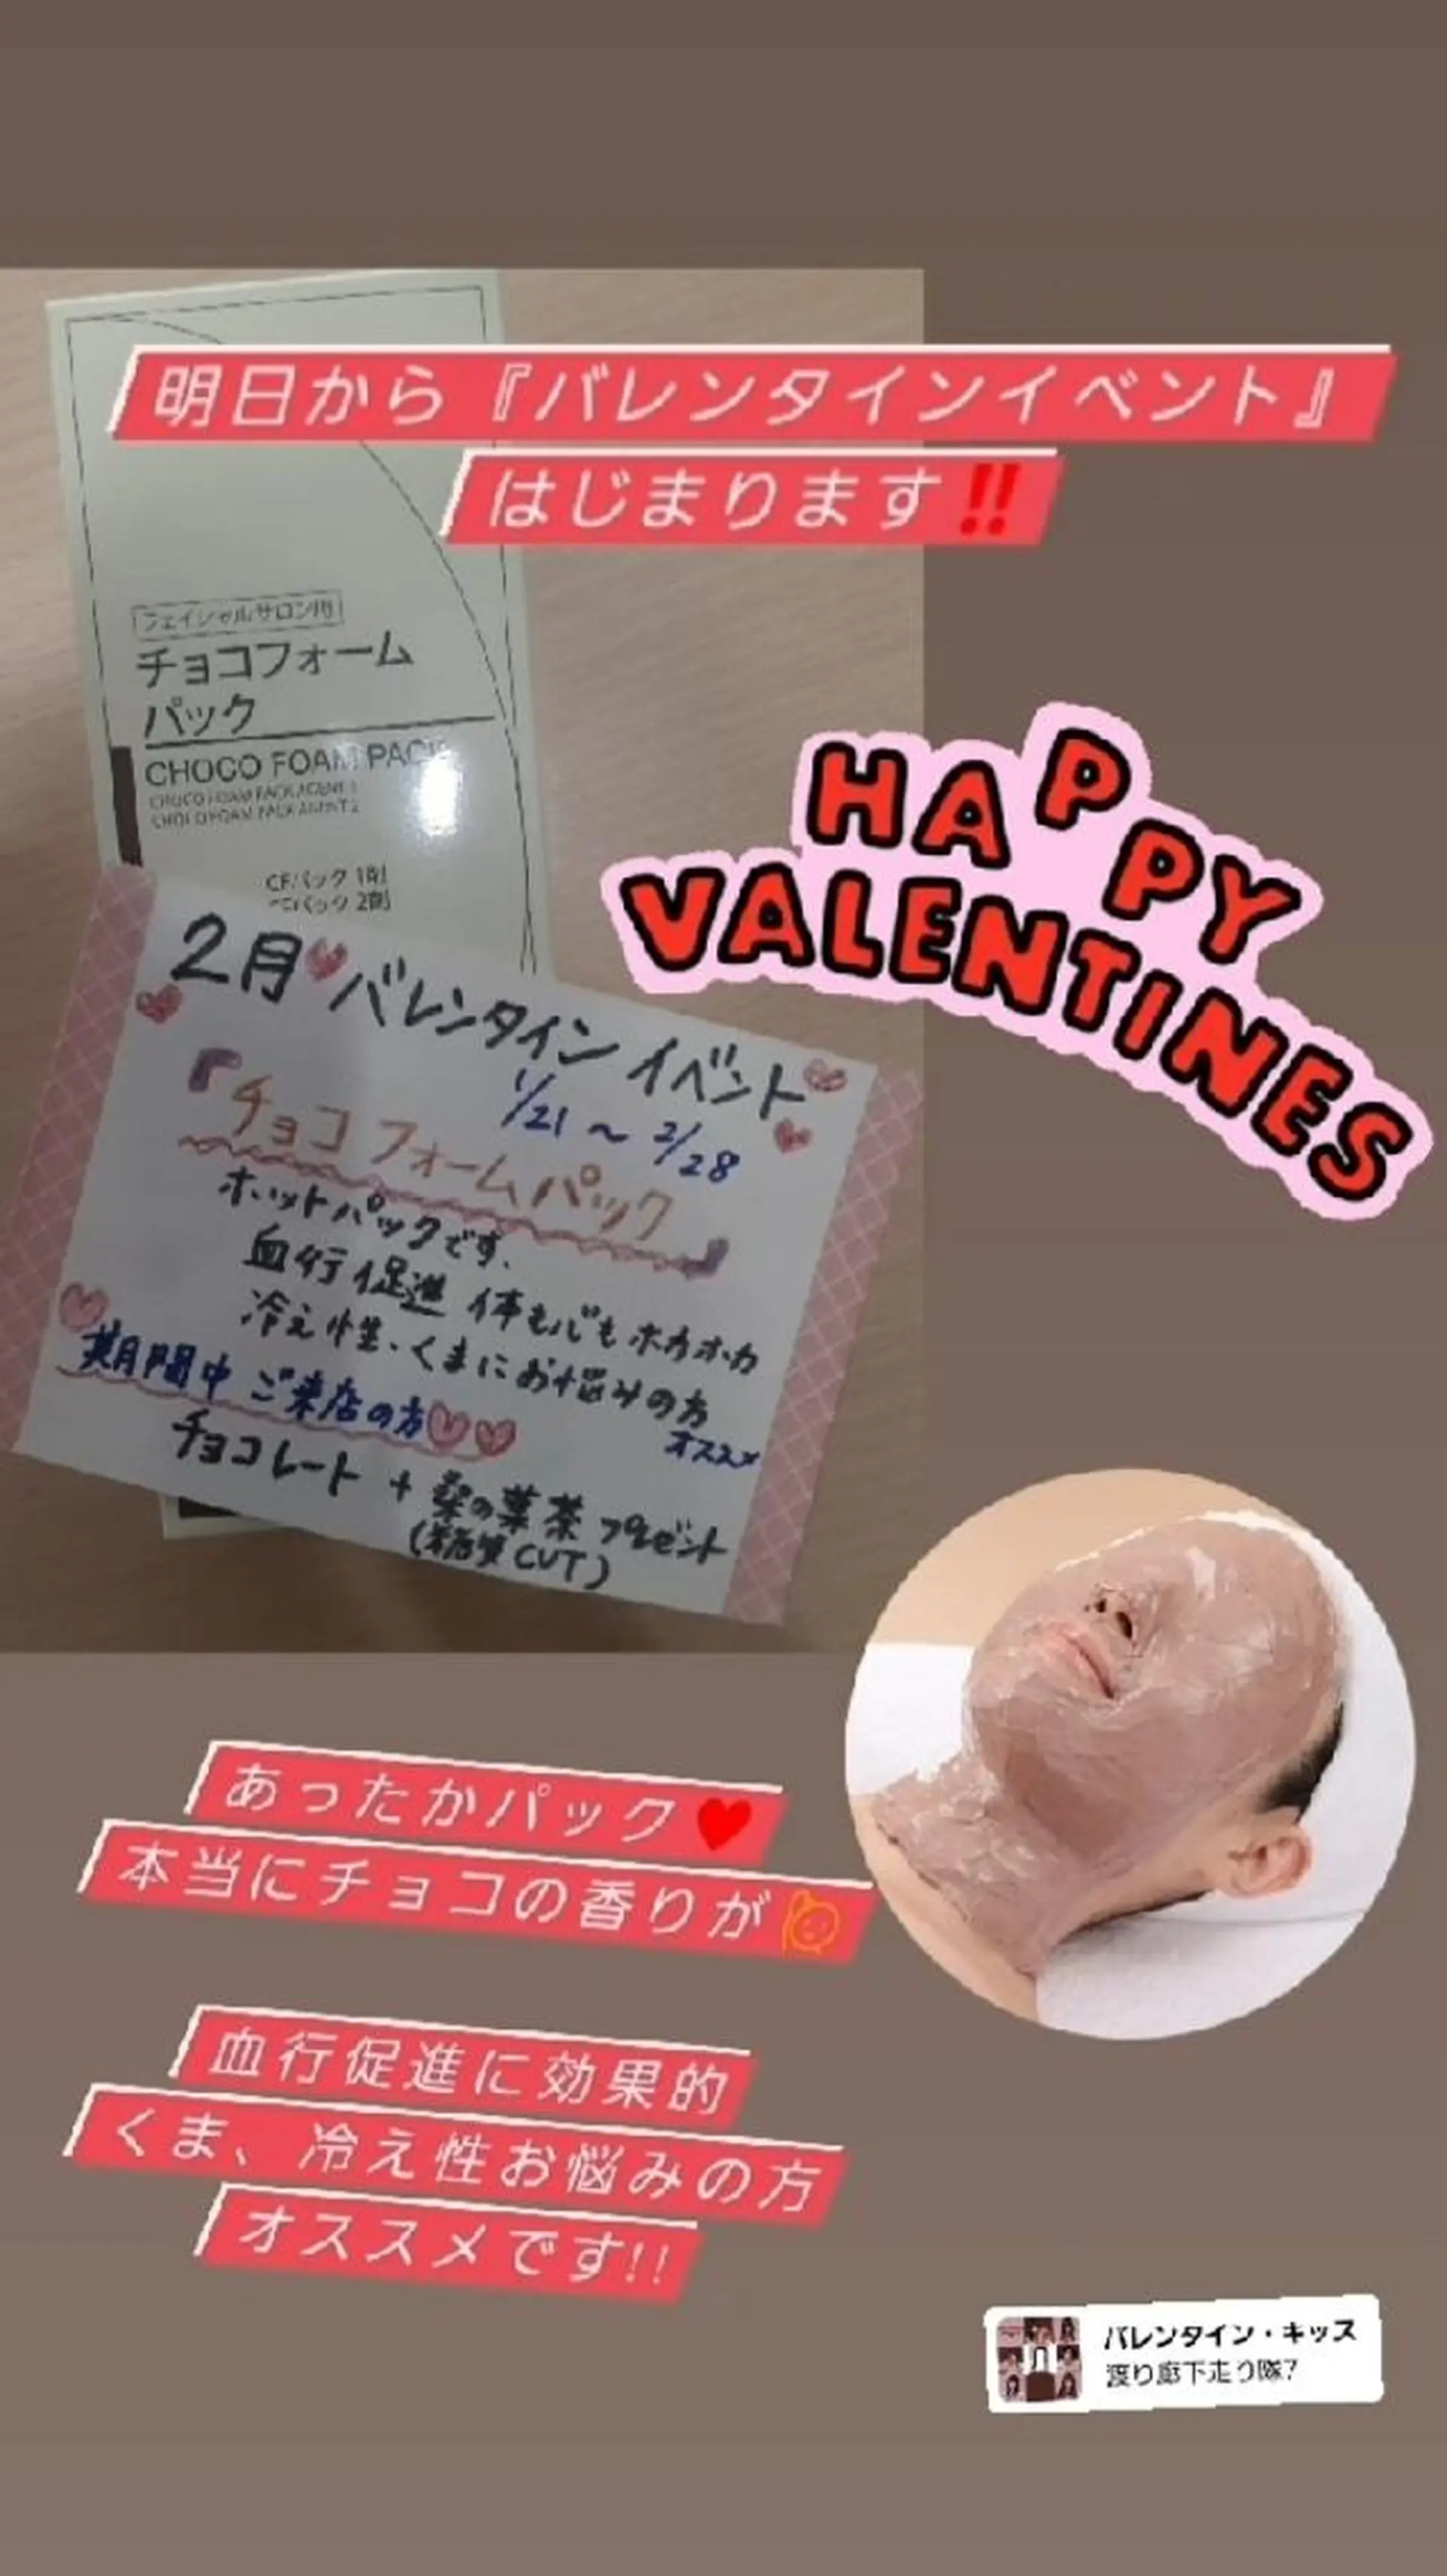 明日から『バレンタインイベント』
はじまります‼
フェイシャルサロン用
チョコフォーム
パック
CHOCO FOAM PACK
CHOCO FOAM PACK AGENT 1
CHOCO FOAM PACK AGENT 2
CFパック 1剤
CFパック 2剤
HAPPY
VALENTINES
2月 バレンタイン イベント
1/21 ~ 2/28
『チョコフォームパック』
ホットパックです、
血行促進 体も心もホカホカ
冷え性、くまにお悩みの方
オススメ
期間中 ご来店の方
チョコレート + 桑の葉茶 プレゼント
(糖質CUT)
あったかパック♥
本当にチョコの香りが
血行促進に効果的
くま、冷え性お悩みの方
オススメです!!
バレンタイン・キッス
渡り廊下走り隊7